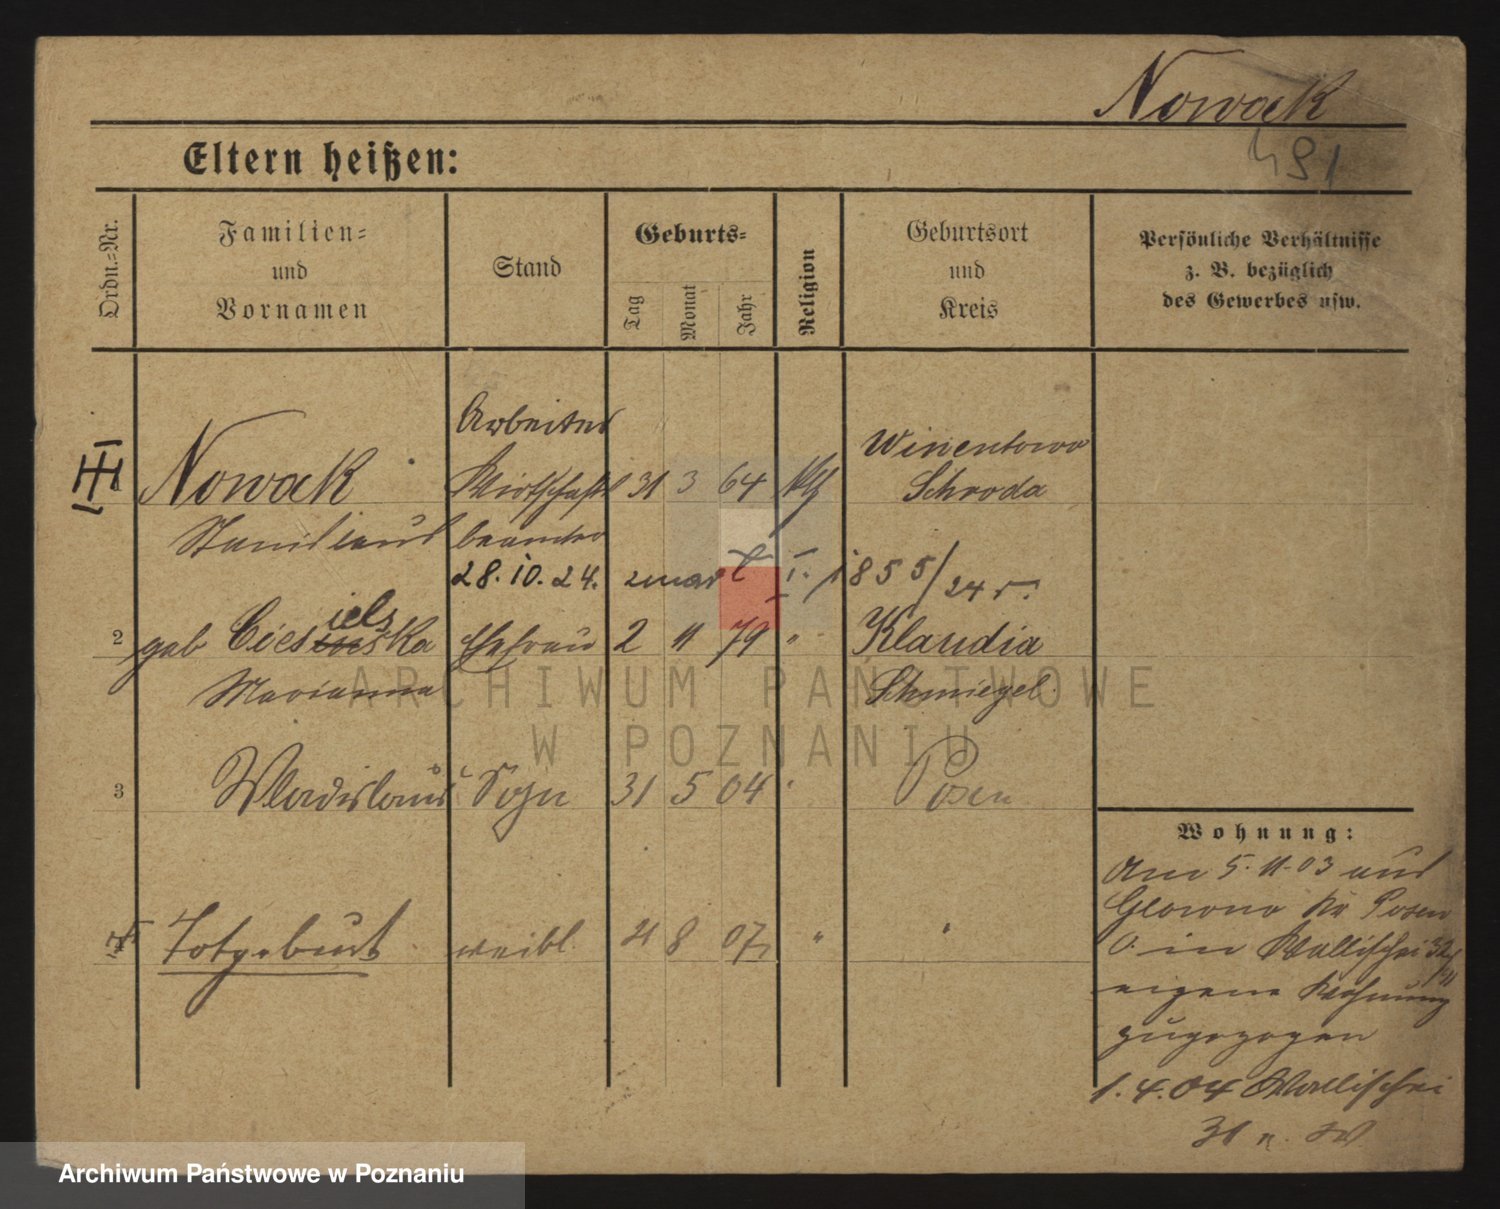 Nowak
491
Eltern heißen:
Ordn.-Nr.
Familien-
und
Vornamen
Stand
Geburts-
Tag
Monat
Jahr
Religion
Geburtsort
und
Kreis
Persönliche Verhältnisse
z. B. bezüglich
des Gewerbes usw.
Arbeiter
Nowak Wirtschafts 31 3 64 kth Winentowo
Schroda
Stanislaus beamter
28.10.24. zmarł 1855/24 r.
iels
2 geb Cies ska Ehefrau 2 11 79 " Klaudia
Marianna Schmiegel
3 Wladislaus Sohn 31 5 04 " Posen
4 Totgeburt weibl. 21 8 07 " "
Wohnung:
Am 5.11.03 aus
Glowno Kr Posen
O. in Wallischei 32/
eigene Wohnung
zugezogen
1.4.04 Wallischei
31
ARCHIWUM PAŃSTWOWE
W POZNANIU
Archiwum Państwowe w Poznaniu